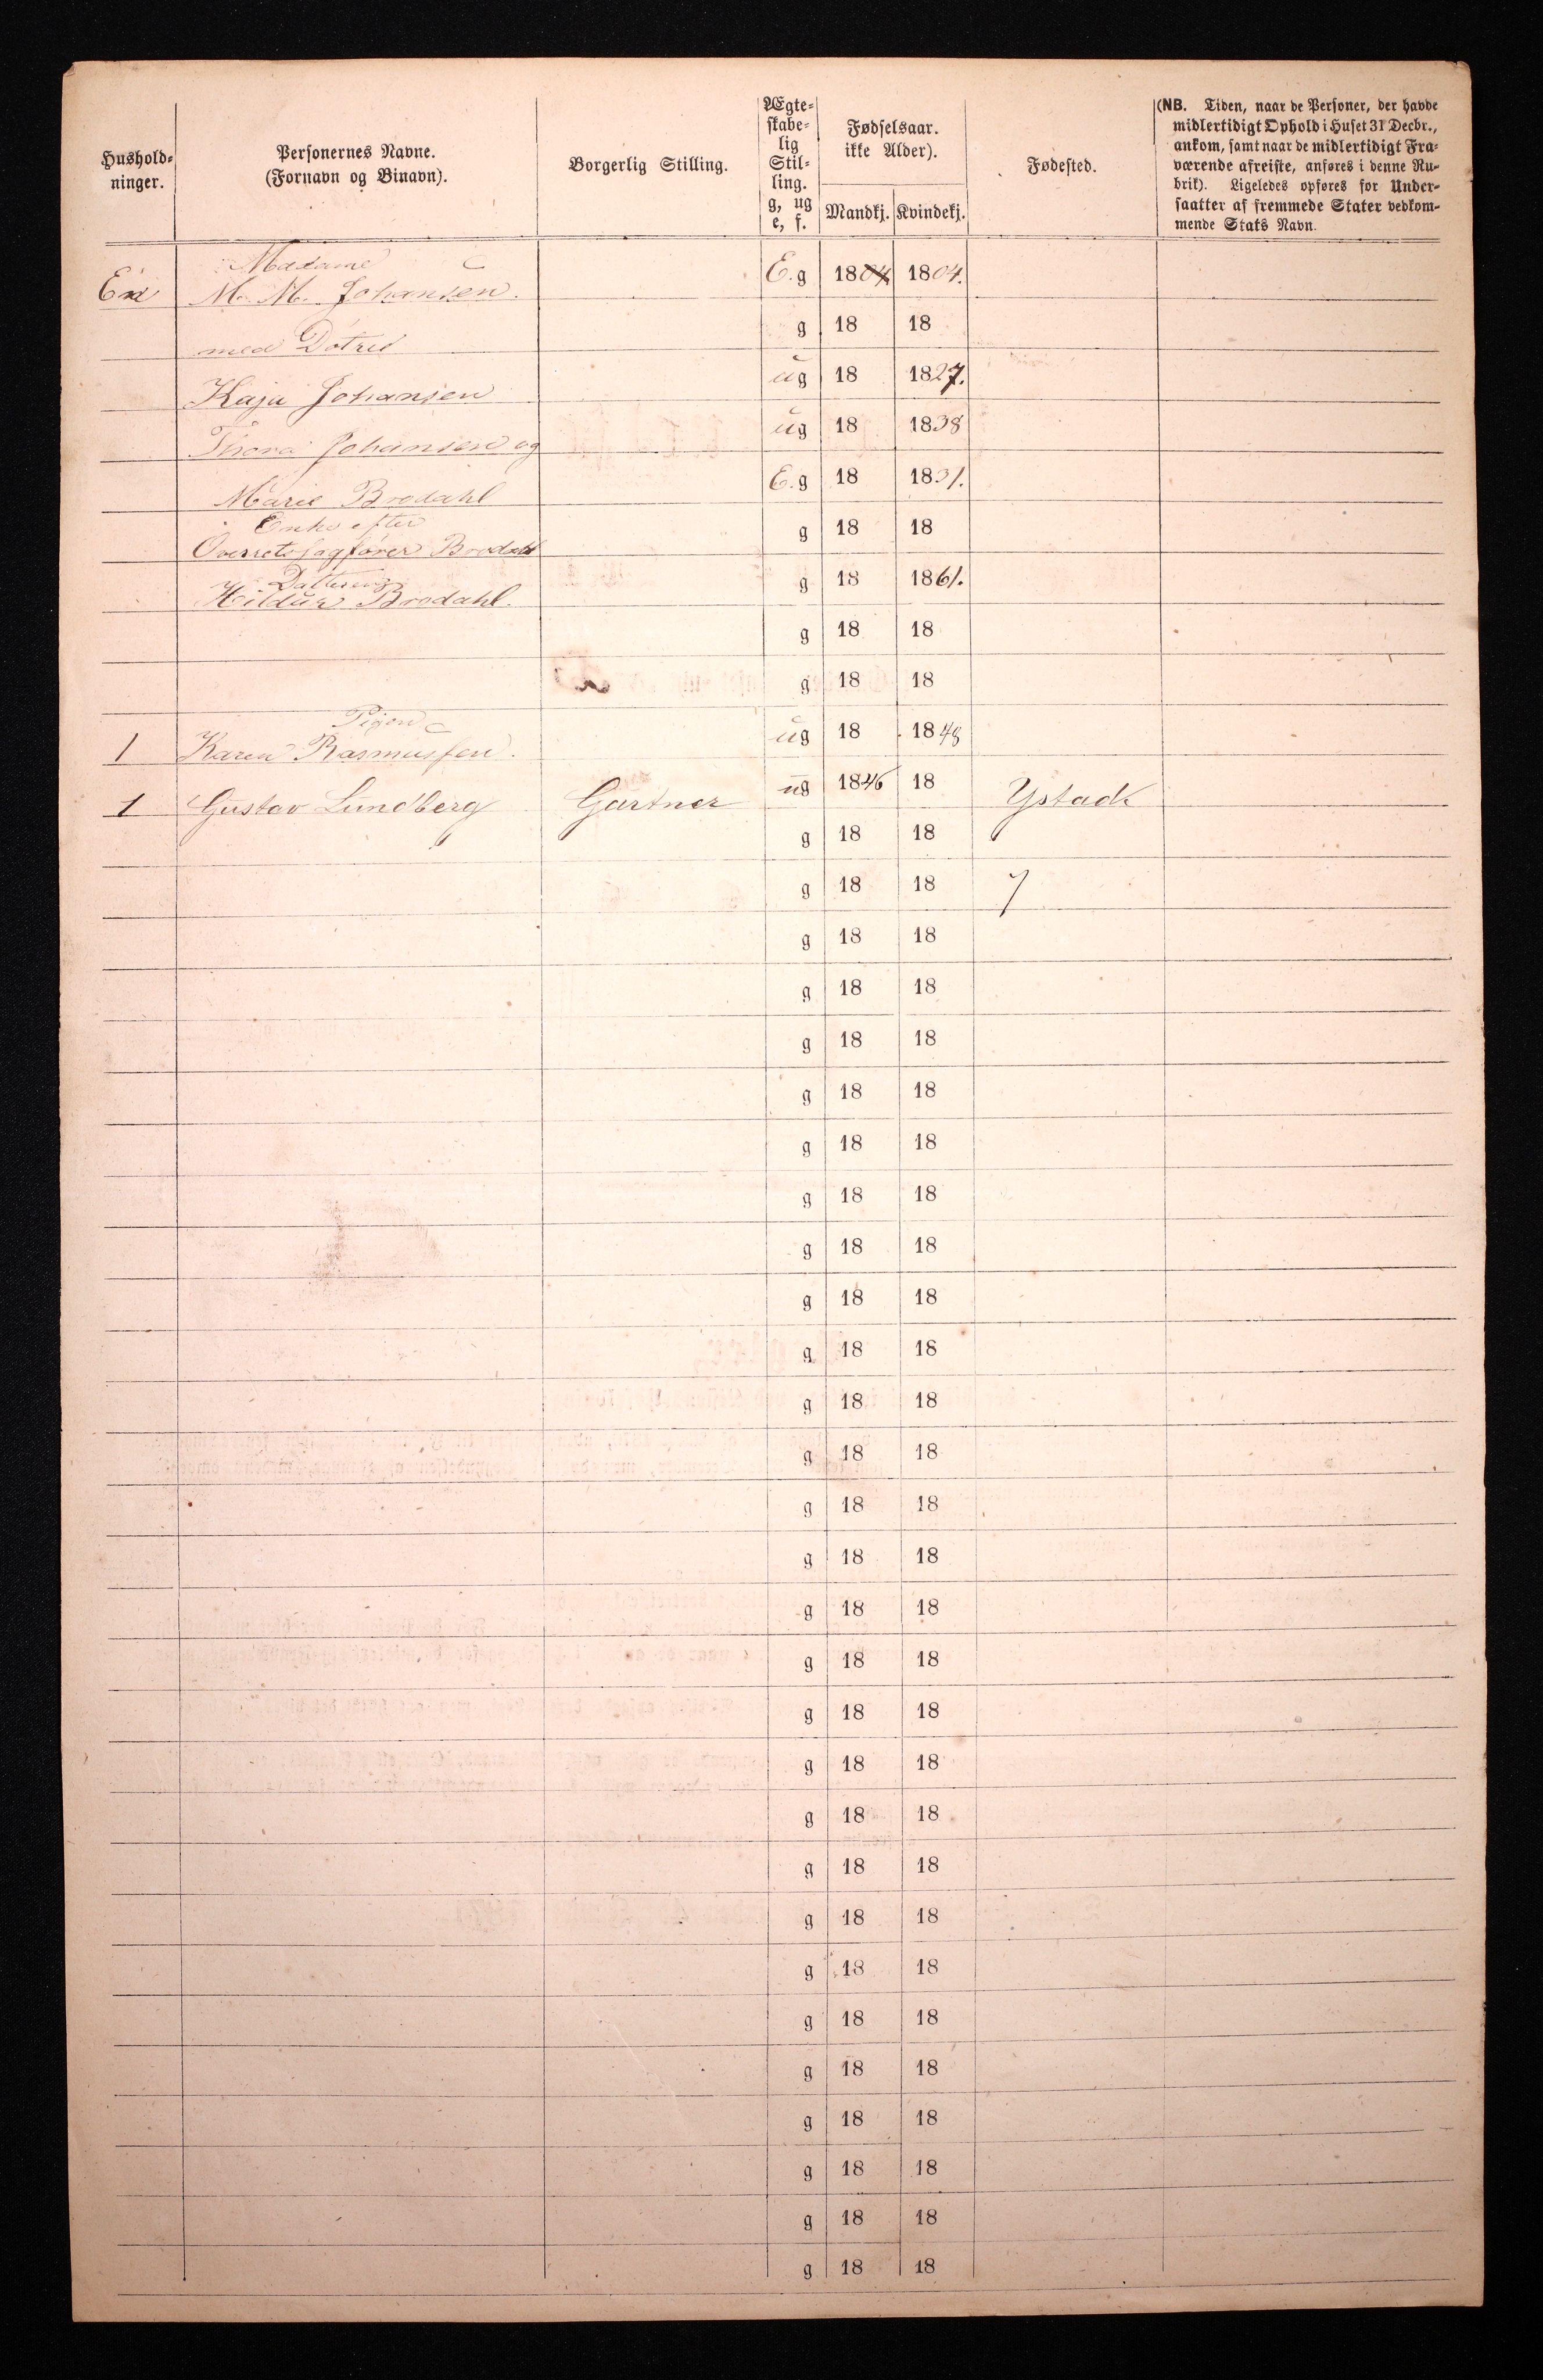 Hushold-
ninger.
Personernes Navne.
(Fornavn og Binavn).
Borgerlig Stilling.
Ægte-
skabe-
lig
Stil-
ling.
g, ug
e, f.
Fødselsaar.
ikke Alder).
Mandkj. Kvindekj.
Fødested.
(NB. Tiden, naar de Personer, der havde
midlertidigt Ophold i Huset 31 Decbr.,
ankom, samt naar de midlertidigt Fra-
værende afreiste, anføres i denne Ru-
brik). Ligeledes opføres for Under-
saatter af fremmede Stater vedkom-
mende Stats Navn.
Madame
En M. M. Johansen. E.g 1804 1804.
med Døtre g 18 18
Kaja Johansen ug 18 1827.
Thora Johansen og ug 18 1838
Marie Brodahl E.g 18 1831.
Enke efter
Overretssagfører Brodahl g 18 18
Datteren
Hildur Brodahl. g 18 1861.
g 18 18
g 18 18
Pigen
1 Karen Rasmussen. ug 18 1848
1 Gustav Lundberg Gartner ug 1846 18 Ystadt
g 18 18
g 18 18 7
g 18 18
g 18 18
g 18 18
g 18 18
g 18 18
g 18 18
g 18 18
g 18 18
g 18 18
g 18 18
g 18 18
g 18 18
g 18 18
g 18 18
g 18 18
g 18 18
g 18 18
g 18 18
g 18 18
g 18 18
g 18 18
g 18 18
g 18 18
g 18 18
g 18 18
g 18 18
g 18 18